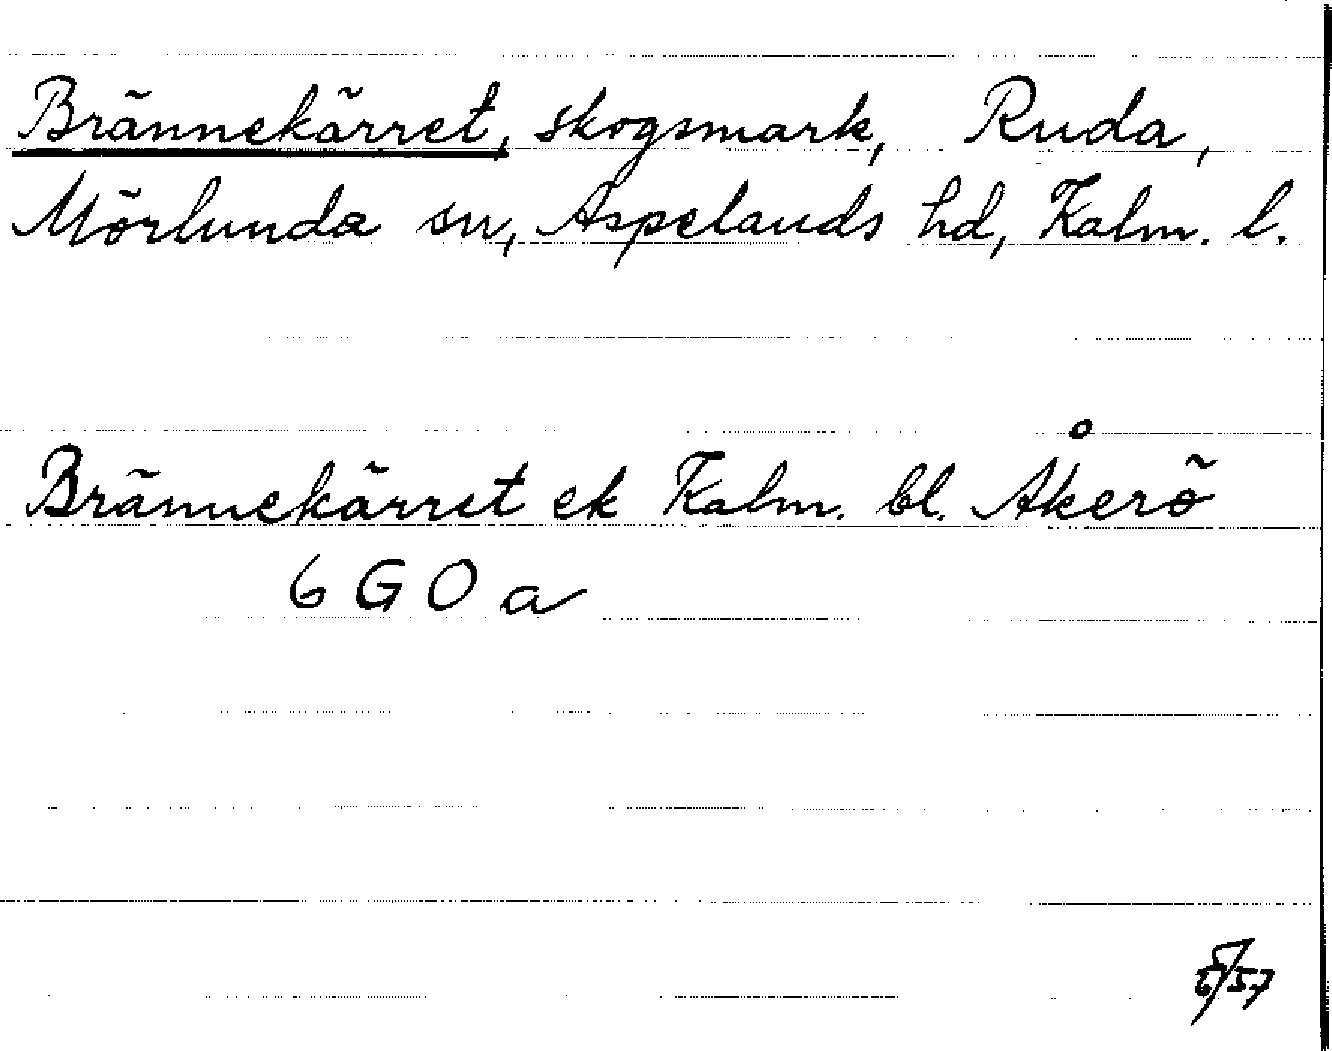 Brännekärret, skogsmark, Ruda,
Mörlunda sn, Aspelands hd, Kalm. l.
Brännekärret ek Kalm. bl. Åkerö
6 G O a